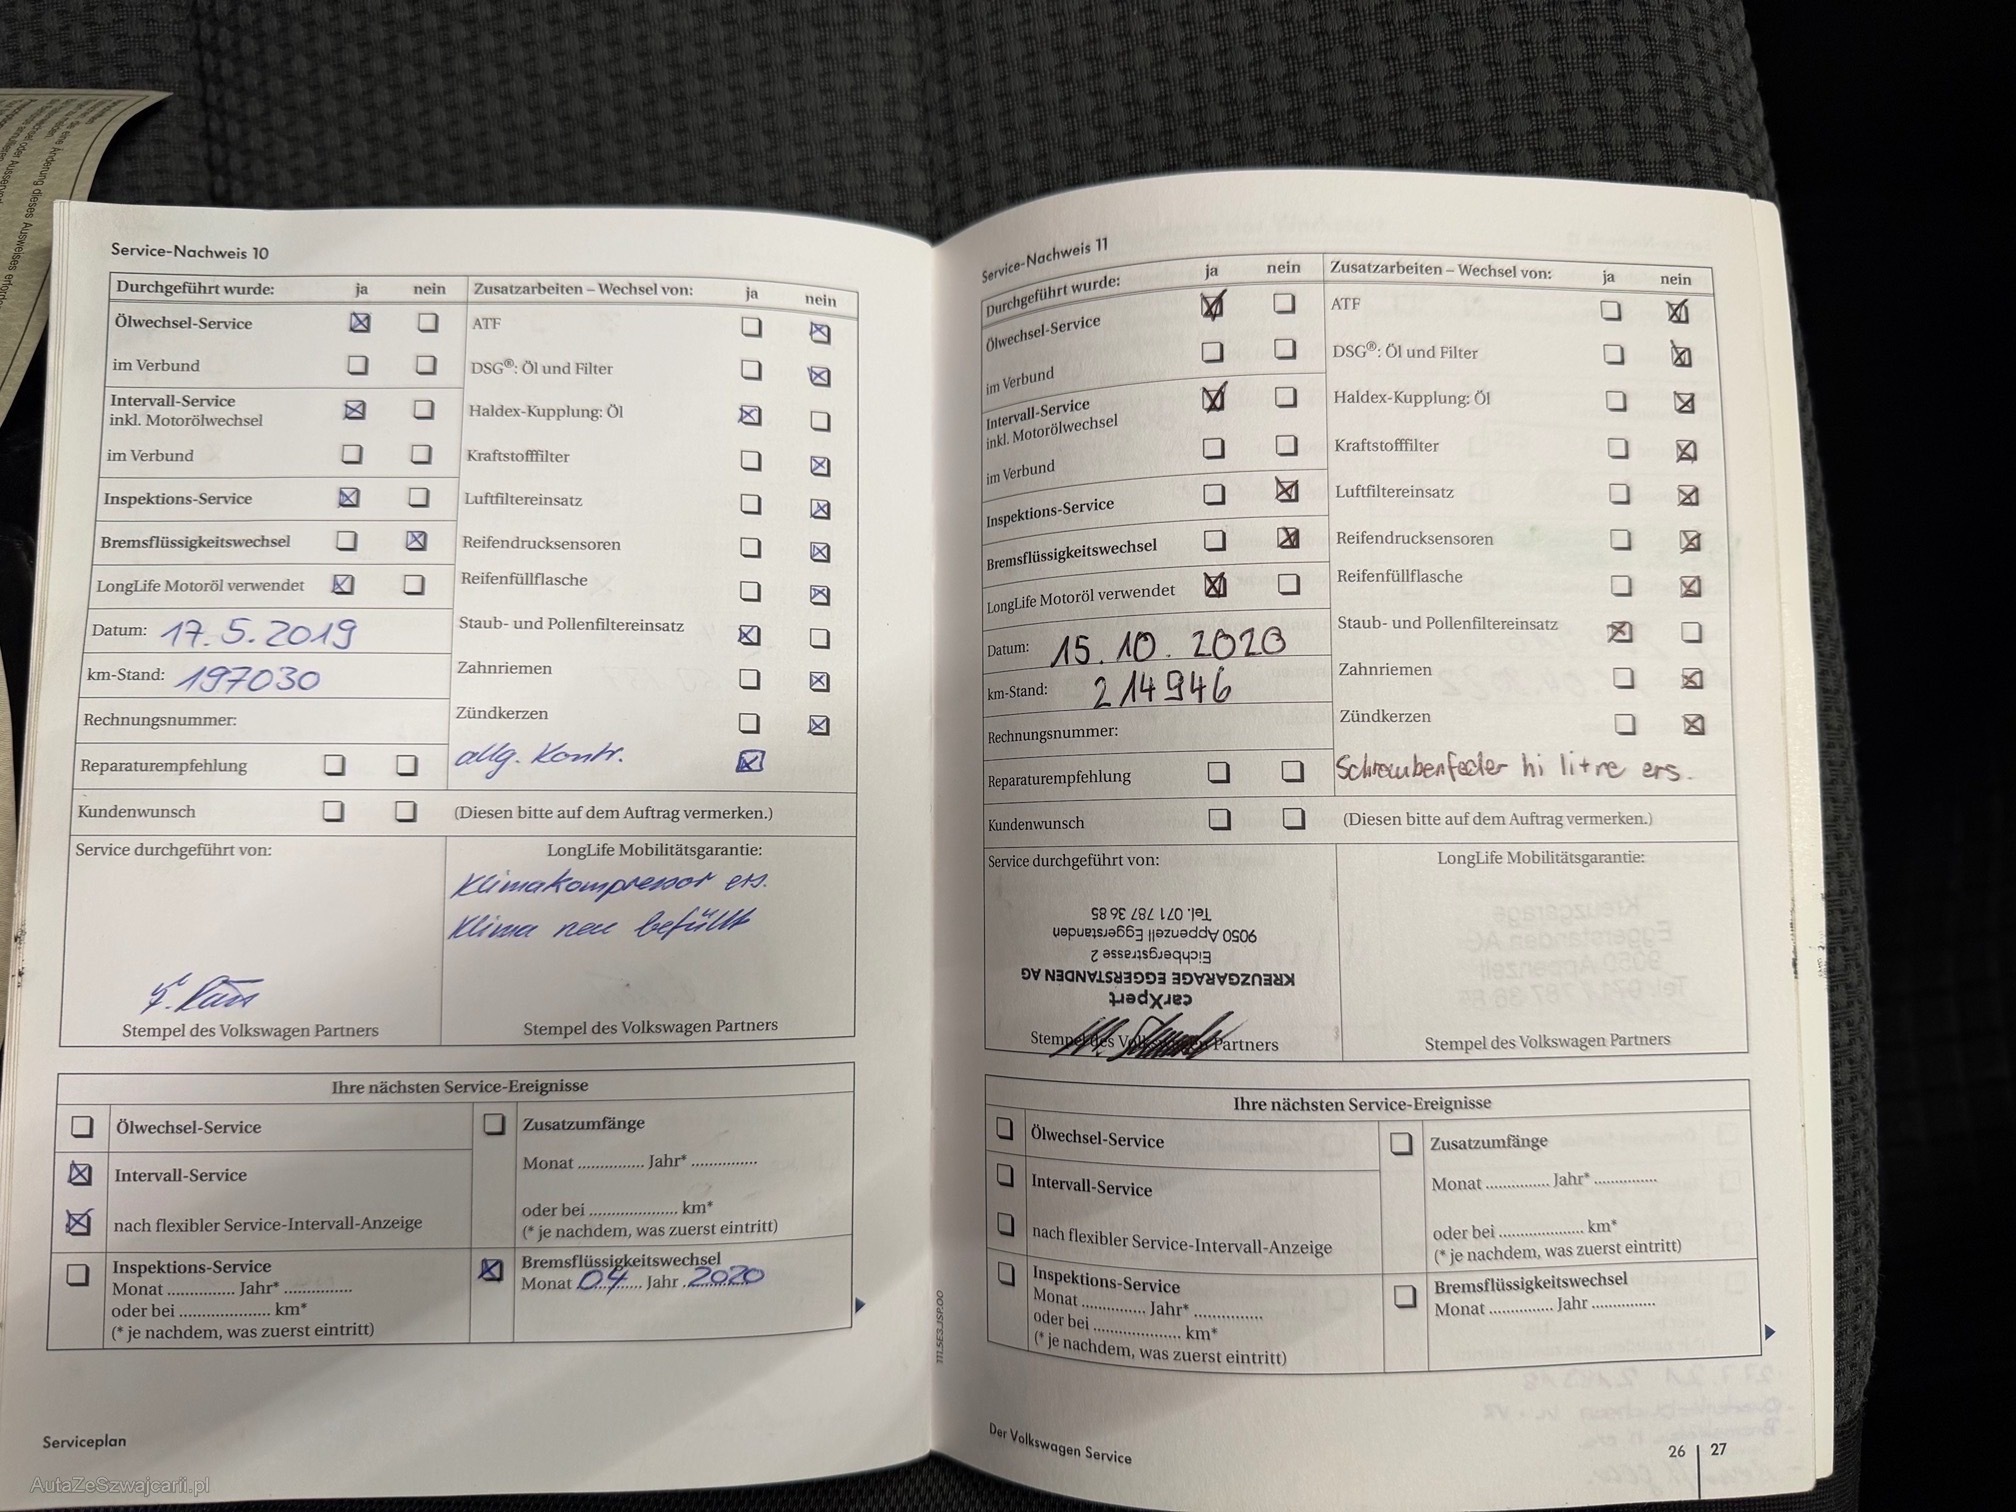 Service-Nachweis 10
Durchgeführt wurde: ja nein Zusatzarbeiten – Wechsel von: ja nein
Ölwechsel-Service ATF
im Verbund DSG®: Öl und Filter
Intervall-Service
inkl. Motorölwechsel Haldex-Kupplung: Öl
im Verbund Kraftstofffilter
Inspektions-Service Luftfiltereinsatz
Bremsflüssigkeitswechsel Reifendrucksensoren
LongLife Motoröl verwendet Reifenfüllflasche
Datum: 17.5.2019 Staub- und Pollenfiltereinsatz
km-Stand: 197030 Zahnriemen
Rechnungsnummer: Zündkerzen
Reparaturempfehlung allg. Kontr.
Kundenwunsch (Diesen bitte auf dem Auftrag vermerken.)
Service durchgeführt von: LongLife Mobilitätsgarantie:
Klimakompressor ers.
Klima neu befüllt
Stempel des Volkswagen Partners Stempel des Volkswagen Partners
Ihre nächsten Service-Ereignisse
Ölwechsel-Service Zusatzumfänge
Intervall-Service Monat ............... Jahr* ...............
nach flexibler Service-Intervall-Anzeige oder bei .................... km*
(* je nachdem, was zuerst eintritt)
Inspektions-Service Bremsflüssigkeitswechsel
Monat ............... Jahr* ............... Monat 04 Jahr 2020
oder bei .................... km*
(* je nachdem, was zuerst eintritt)
Serviceplan
Service-Nachweis 11
Durchgeführt wurde: ja nein Zusatzarbeiten – Wechsel von: ja nein
Ölwechsel-Service ATF
im Verbund DSG®: Öl und Filter
Intervall-Service
inkl. Motorölwechsel Haldex-Kupplung: Öl
im Verbund Kraftstofffilter
Inspektions-Service Luftfiltereinsatz
Bremsflüssigkeitswechsel Reifendrucksensoren
LongLife Motoröl verwendet Reifenfüllflasche
Datum: 15.10.2020 Staub- und Pollenfiltereinsatz
km-Stand: 214946 Zahnriemen
Rechnungsnummer: Zündkerzen
Reparaturempfehlung Schraubenfeder hi li+re ers.
Kundenwunsch (Diesen bitte auf dem Auftrag vermerken.)
Service durchgeführt von: LongLife Mobilitätsgarantie:
carXpert
KREUZGARAGE EGGERSTANDEN AG
Eichbergstrasse 2
9050 Appenzell Eggerstanden
Tel. 071 787 36 85
Stempel des Volkswagen Partners Stempel des Volkswagen Partners
Ihre nächsten Service-Ereignisse
Ölwechsel-Service Zusatzumfänge
Intervall-Service Monat ............... Jahr* ...............
nach flexibler Service-Intervall-Anzeige oder bei .................... km*
(* je nachdem, was zuerst eintritt)
Inspektions-Service Bremsflüssigkeitswechsel
Monat ............... Jahr* ............... Monat ............... Jahr ...............
oder bei .................... km*
(* je nachdem, was zuerst eintritt)
Der Volkswagen Service
26 | 27
AutaZeSzwajcarii.pl